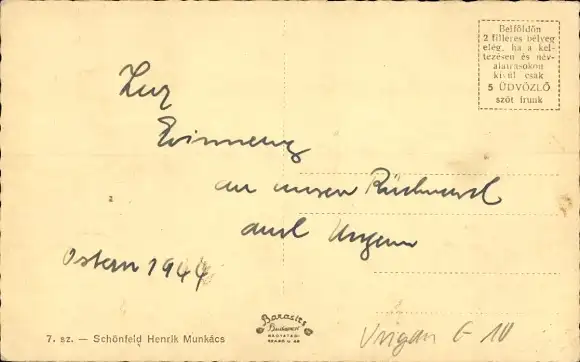 Belföldön
2 filléres bélyeg
elég, ha a kel-
tezésen és név-
aláírásokon
kívül csak
5 ÜDVÖZLŐ
szót írunk
Zur
Erinnerung
an unsern Rückmarsch
durch Ungarn
Ostern 1944
7. sz. — Schönfeld Henrik Munkács
Barasits
Budapest
Ungarn G-10